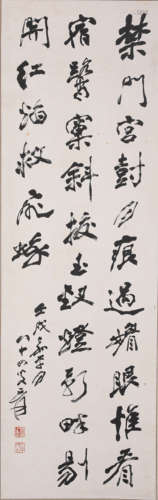 禁門宮樹月痕過媚眼惟看
宿鷺窠斜拔玉釵燈影畔剔
開紅焰救飛蛾
壬戌
八十四叟爰